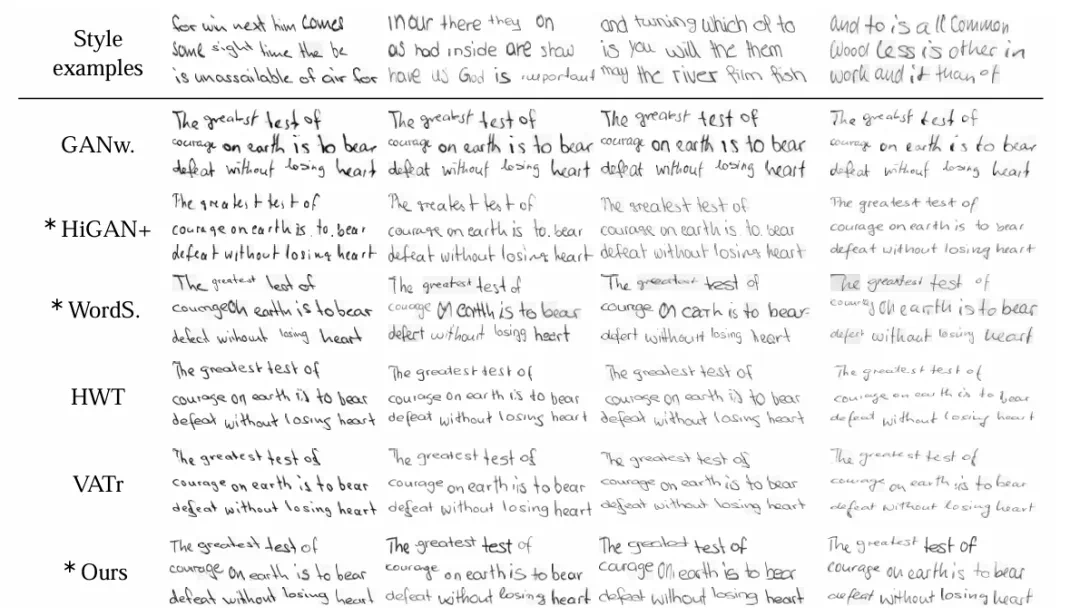 Style
examples
for win next him comes
same sight time the be
is unassailable of air for
in our there they on
as had inside are show
have us God is important
and turning which of to
is you will the them
may the river film fish
and to is all Common
Wood less is other in
work and it than of
GANw.
The greatest test of
courage on earth is to bear
defeat without losing heart
The greatest test of
courage on earth is to bear
defeat without losing heart
The greatest test of
courage on earth is to bear
defeat without losing heart
The greatest test of
courage on earth is to bear
defeat without losing heart
*HiGAN+
The greatest test of
courage on earth is to. bear
defeat without losing heart
The greatest test of
courage on earth is to. bear
defeat without losing heart
The greatest test of
courage on earth is to. bear
defeat without losing heart
The greatest test of
courage on earth is to bear
defeat without losing heart
*WordS.
The greatest test of
courage on earth is to bear
defect without losing heart
The greatest test of
courage on earth is to bear
defert without losing heart
The greatest test of
courage on earth is to bear
defert without losing heart
The greatest test of
courage on earth is to bear
defert without losing heart
HWT
The greatest test of
courage on earth is to bear
defeat without losing heart
The greatest test of
courage on earth is to bear
defeat without losing heart
The greatest test of
courage on earth is to bear
defeat without losing heart
The greatest test of
courage on earth is to bear
defeat without losing heart
VATr
The greatest test of
courage on earth is to bear
defeat without losing heart
The greatest test of
courage on earth is to bear
defeat without losing heart
The greatest test of
courage on earth is to bear
defeat without losing heart
The greatest test of
courage on earth is to bear
defeat without losing heart
*Ours
The greatest test of
courage on earth is to bear
defeat without losing heart
The greatest test of
courage on earth is to bear
defeat without losing heart
The greatest test of
courage on earth is to bear
defeat without losing heart
The greatest test of
courage on earth is to bear
defeat without losing heart